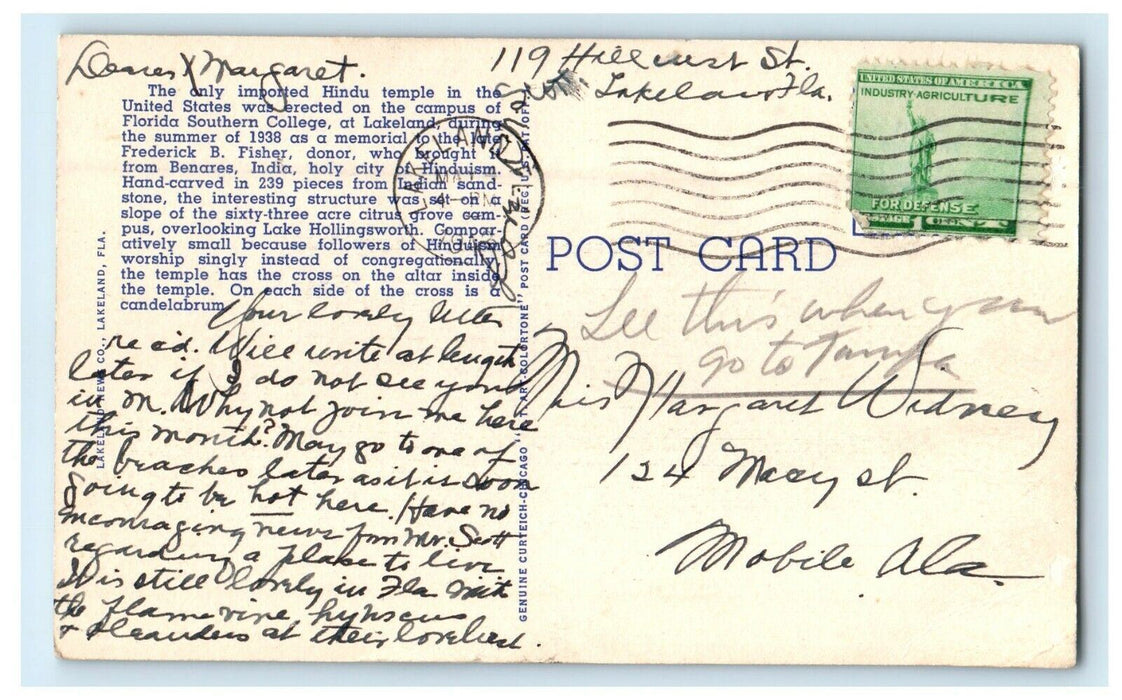 Dearest Margaret.
119 Hillcrest St.
Lakeland Fla.
The only imported Hindu temple in the
United States was erected on the campus of
Florida Southern College, at Lakeland, during
the summer of 1938 as a memorial to the late
Frederick B. Fisher, donor, who brought it
from Benares, India, holy city of Hinduism.
Hand-carved in 239 pieces from Indian sand-
stone, the interesting structure was set on a
slope of the sixty-three acre citrus grove cam-
pus, overlooking Lake Hollingsworth. Compar-
atively small because followers of Hinduism
worship singly instead of congregationally,
the temple has the cross on the altar inside
the temple. On each side of the cross is a
candelabrum.
Your lovely letter
rec'd. Will write at length
later if I do not see you
in M. Why not join me here
this month? May go to one of
the beaches later as it is soon
going to be hot here. Have no
encouraging news from Mr. Scott
regarding a place to live
It is still lovely in Fla with
the flame vine, hybiscus
& oleanders at their loveliest.
LAKELAND NEWS CO., LAKELAND, FLA.
GENUINE CURTEICH-CHICAGO "C.T. ART-COLORTONE" POST CARD (REG. U.S. PAT. OFF.)
LAKELAND
MAY
PM
UNITED STATES OF AMERICA
INDUSTRY·AGRICULTURE
FOR DEFENSE
POSTAGE 1 CENT
POST CARD
See this when you
go to Tampa
Miss Margaret Widney
124 Macy st.
Mobile Ala.